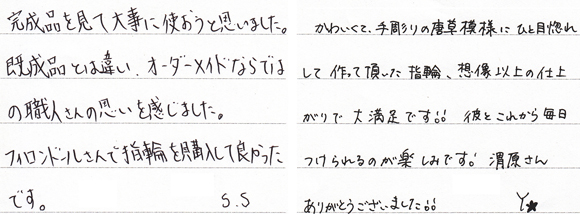 完成品を見て大事に使おうと思いました。
既成品とは違い、オーダーメイドならでは
の職人さんの思いを感じました。
フィロンドールさんで指輪を購入して良かった
です。
S.S
かわいくて、手彫りの唐草模様にひと目惚れ
して作って頂いた指輪、想像以上の仕上
がりで大満足です!! 彼とこれから毎日
つけられるのが楽しみです! 渭原さん
ありがとうございました!!
Y★